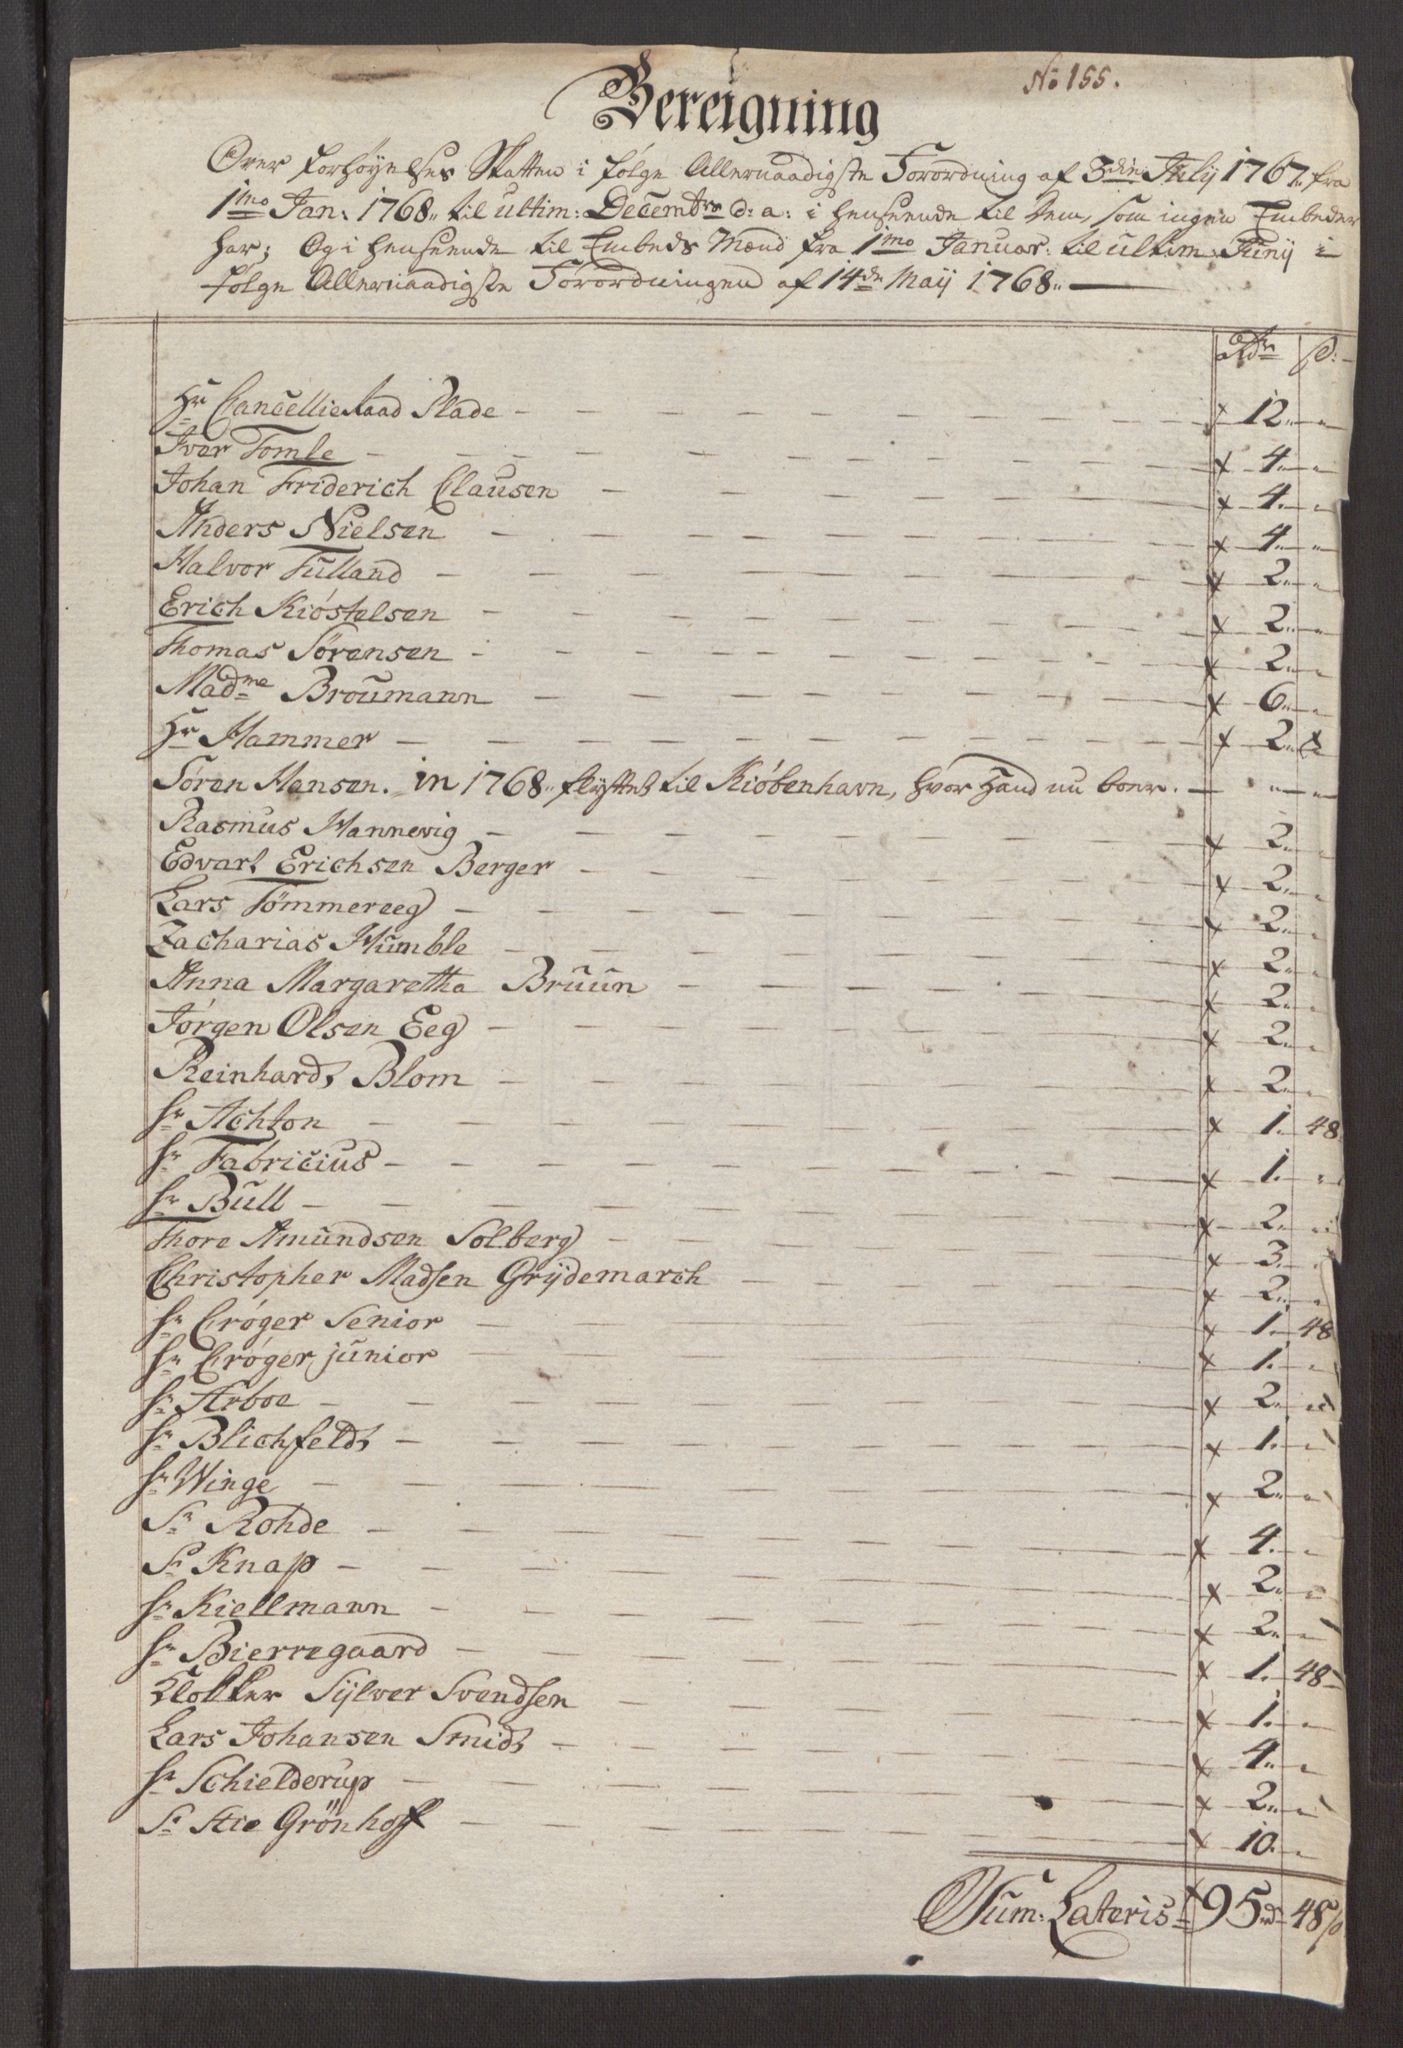 No 155.
Bereigning
Over Forhøyelses Skatten i følge Allernaadigste Forordning af 3die Julij 1767" fra
1mo Jan: 1768" til ultim: Decembre d: a: i henseende til dem, som ingen Embeder
har; Og i henseende til Embeds Mænd fra 1mo Januar: til ultim: Junij i
følge Allernaadigste Forordningen af 14de Maij 1768"
Rdr s:
Hr Cancellie Raad Plade - x 12" "
Iver Tomle - x 4" "
Johan Friderich Clausen - x 4" "
Anders Nielsen - x 4" "
Halvor Fülland - x 2" "
Erich Kióstelsen - x 2" "
Thomas Sörensen - x 2" "
Madme Broümann - x 6" "
Hr Hammer - x 2"
Sören Hansen. in 1768" flyttet til Kióbenhavn, hvor Hand nu boer. - " "
Rasmus Hannevig - x 2" "
Edvart Erichsen Berger - x 2" "
Lars Tömmereeg - x 2" "
Zacharias Hümble - x 2" "
Anna Margaretha Brüün - x 2" "
Jórgen Olsen Eeg - x 2" "
Reinhardt Blom - x 2" "
Sr Achton - x 1. 48
Sr Fabricius - x 1. "
Sr Büll - x 2" "
Thore Amündsen Solberg - x 3. "
Christopher Madsen Grijdemarch - x 2" "
Sr Cróger Senior - x 1. 48
Sr Cróger jünior - x 1. "
Sr Arboe - x 2" "
Sr Blichfeldt - x 1. "
Sr Winge - x 2" "
Sr Rohde - x 4. "
Sr Knap - x 2" "
Sr Kiellmann - x 2" "
Sr Bierregaard - x 1. 48
Klokker Sÿlver Svendsen - x 1. "
Lars Johansen Smidt - x 4" "
Sr Schielderup - x 2" "
Sr Stie Grönhoff - x 10. "
Sum: Lateris x 95rd 48s